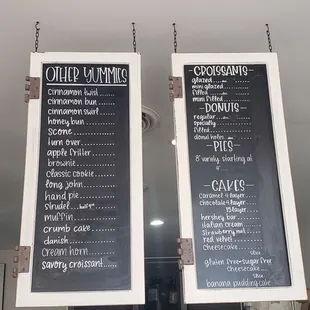 OTHER YUMMIES
cinnamon twist
cinnamon bun
cinnamon swirl
honey bun
scone
turn over
apple fritter
brownie
classic cookie
long john
hand pie
strudel
muffin
crumb cake
danish
cream horn
savory croissant
CROISSANTS
glazed
mini glazed
filled
mini filled
DONUTS
regular
specialty
filled
donut holes
PIES
8" variety starting at
CAKES
caramel 4 layer
chocolate 4 layer
15 layer
hershey bar
italian cream
strawberry
red velvet
cheesecake
gluten free-sugar free
cheesecake
banana pudding cake